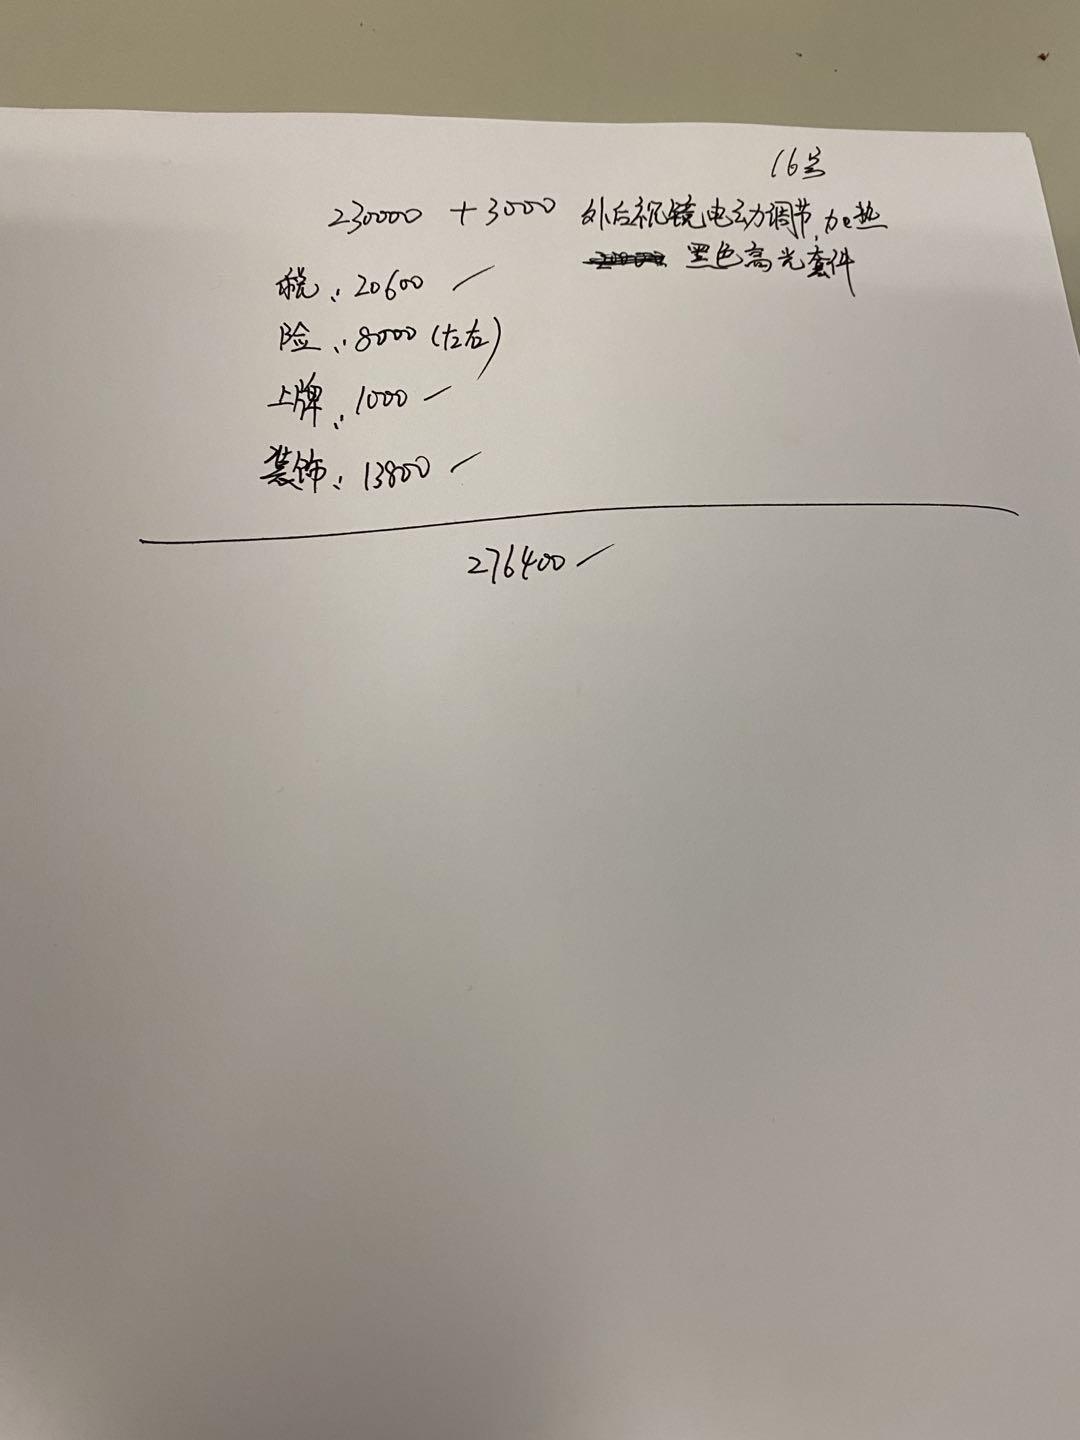 16号
230000 +3000 外后视镜电动调节,加热
黑色高光套件
税:20600
险:8000(左右)
上牌:1000
装饰:13800
276400